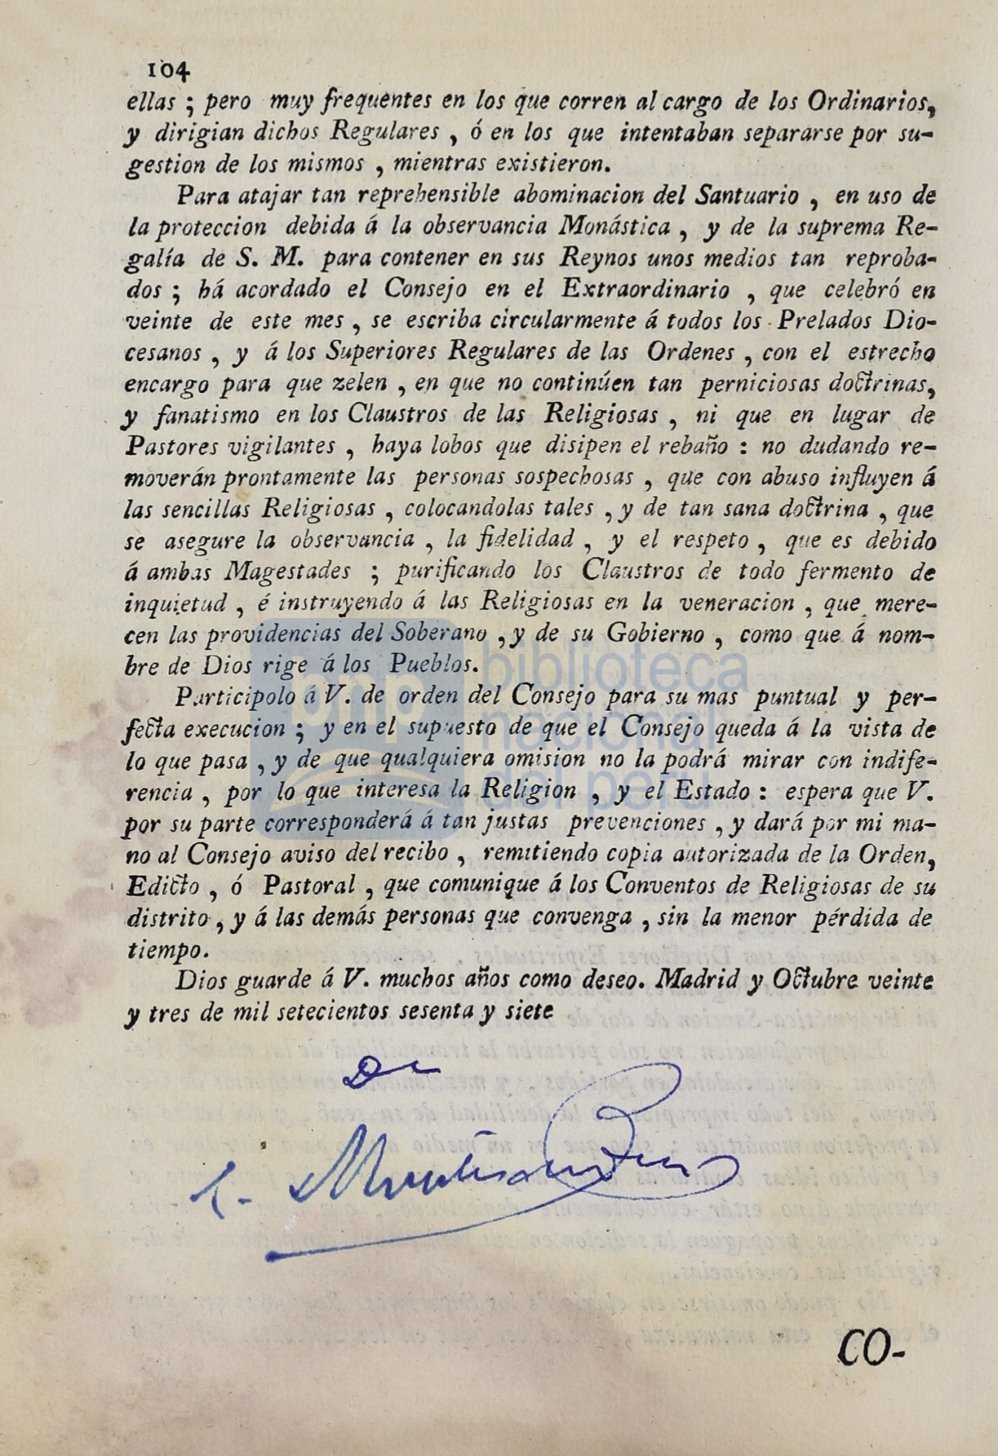 104
ellas ; pero muy frequentes en los que corren al cargo de los Ordinarios,
y dirigian dichos Regulares , ó en los que intentaban separarse por su-
gestion de los mismos , mientras existieron.
Para atajar tan reprehensible abominacion del Santuario , en uso de
la proteccion debida á la observancia Monástica , y de la suprema Re-
galía de S. M. para contener en sus Reynos unos medios tan reproba-
dos ; há acordado el Consejo en el Extraordinario , que celebró en
veinte de este mes , se escriba circularmente á todos los Prelados Dio-
cesanos , y á los Superiores Regulares de las Ordenes , con el estrecho
encargo para que zelen , en que no continúen tan perniciosas doctrinas,
y fanatismo en los Claustros de las Religiosas , ni que en lugar de
Pastores vigilantes , haya lobos que disipen el rebaño : no dudando re-
moverán prontamente las personas sospechosas , que con abuso influyen á
las sencillas Religiosas , colocandolas tales , y de tan sana doctrina , que
se asegure la observancia , la fidelidad , y el respeto , que es debido
á ambas Magestades ; purificando los Claustros de todo fermento de
inquietud , é instruyendo á las Religiosas en la veneracion , que mere-
cen las providencias del Soberano , y de su Gobierno , como que á nom-
bre de Dios rige á los Pueblos.
Participolo á V. de orden del Consejo para su mas puntual y per-
fecta execucion ; y en el supuesto de que el Consejo queda á la vista de
lo que pasa , y de que qualquiera omision no la podrá mirar con indife-
rencia , por lo que interesa la Religion , y el Estado : espera que V.
por su parte corresponderá á tan justas prevenciones , y dará por mi ma-
no al Consejo aviso del recibo , remitiendo copia autorizada de la Orden,
Edicto , ó Pastoral , que comunique á los Conventos de Religiosas de su
distrito , y á las demás personas que convenga , sin la menor pérdida de
tiempo.
Dios guarde á V. muchos años como deseo. Madrid y Octubre veinte
y tres de mil setecientos sesenta y siete
CO-
biblioteca
nacional
del perú